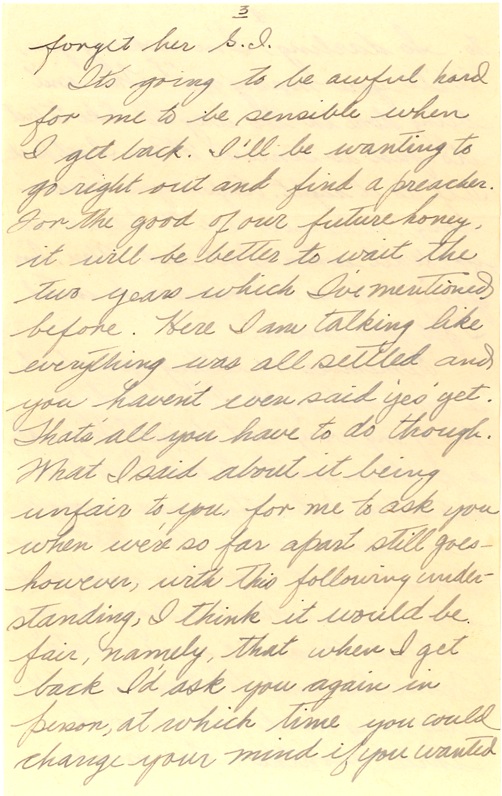 3
forget her G.I.
Its going to be awful hard
for me to be sensible when
I get back. I'll be wanting to
go right out and find a preacher.
For the good of our future honey,
it will be better to wait the
two years which I've mentioned
before. Here I am talking like
everything was all settled and
you haven't even said 'yes' yet.
Thats' all you have to do though.
What I said about it being
unfair to you for me to ask you
when we're so far apart still goes-
however, with this following under-
standing, I think it would be
fair, namely, that when I get
back I'd ask you again in
person, at which time you could
change your mind if you wanted